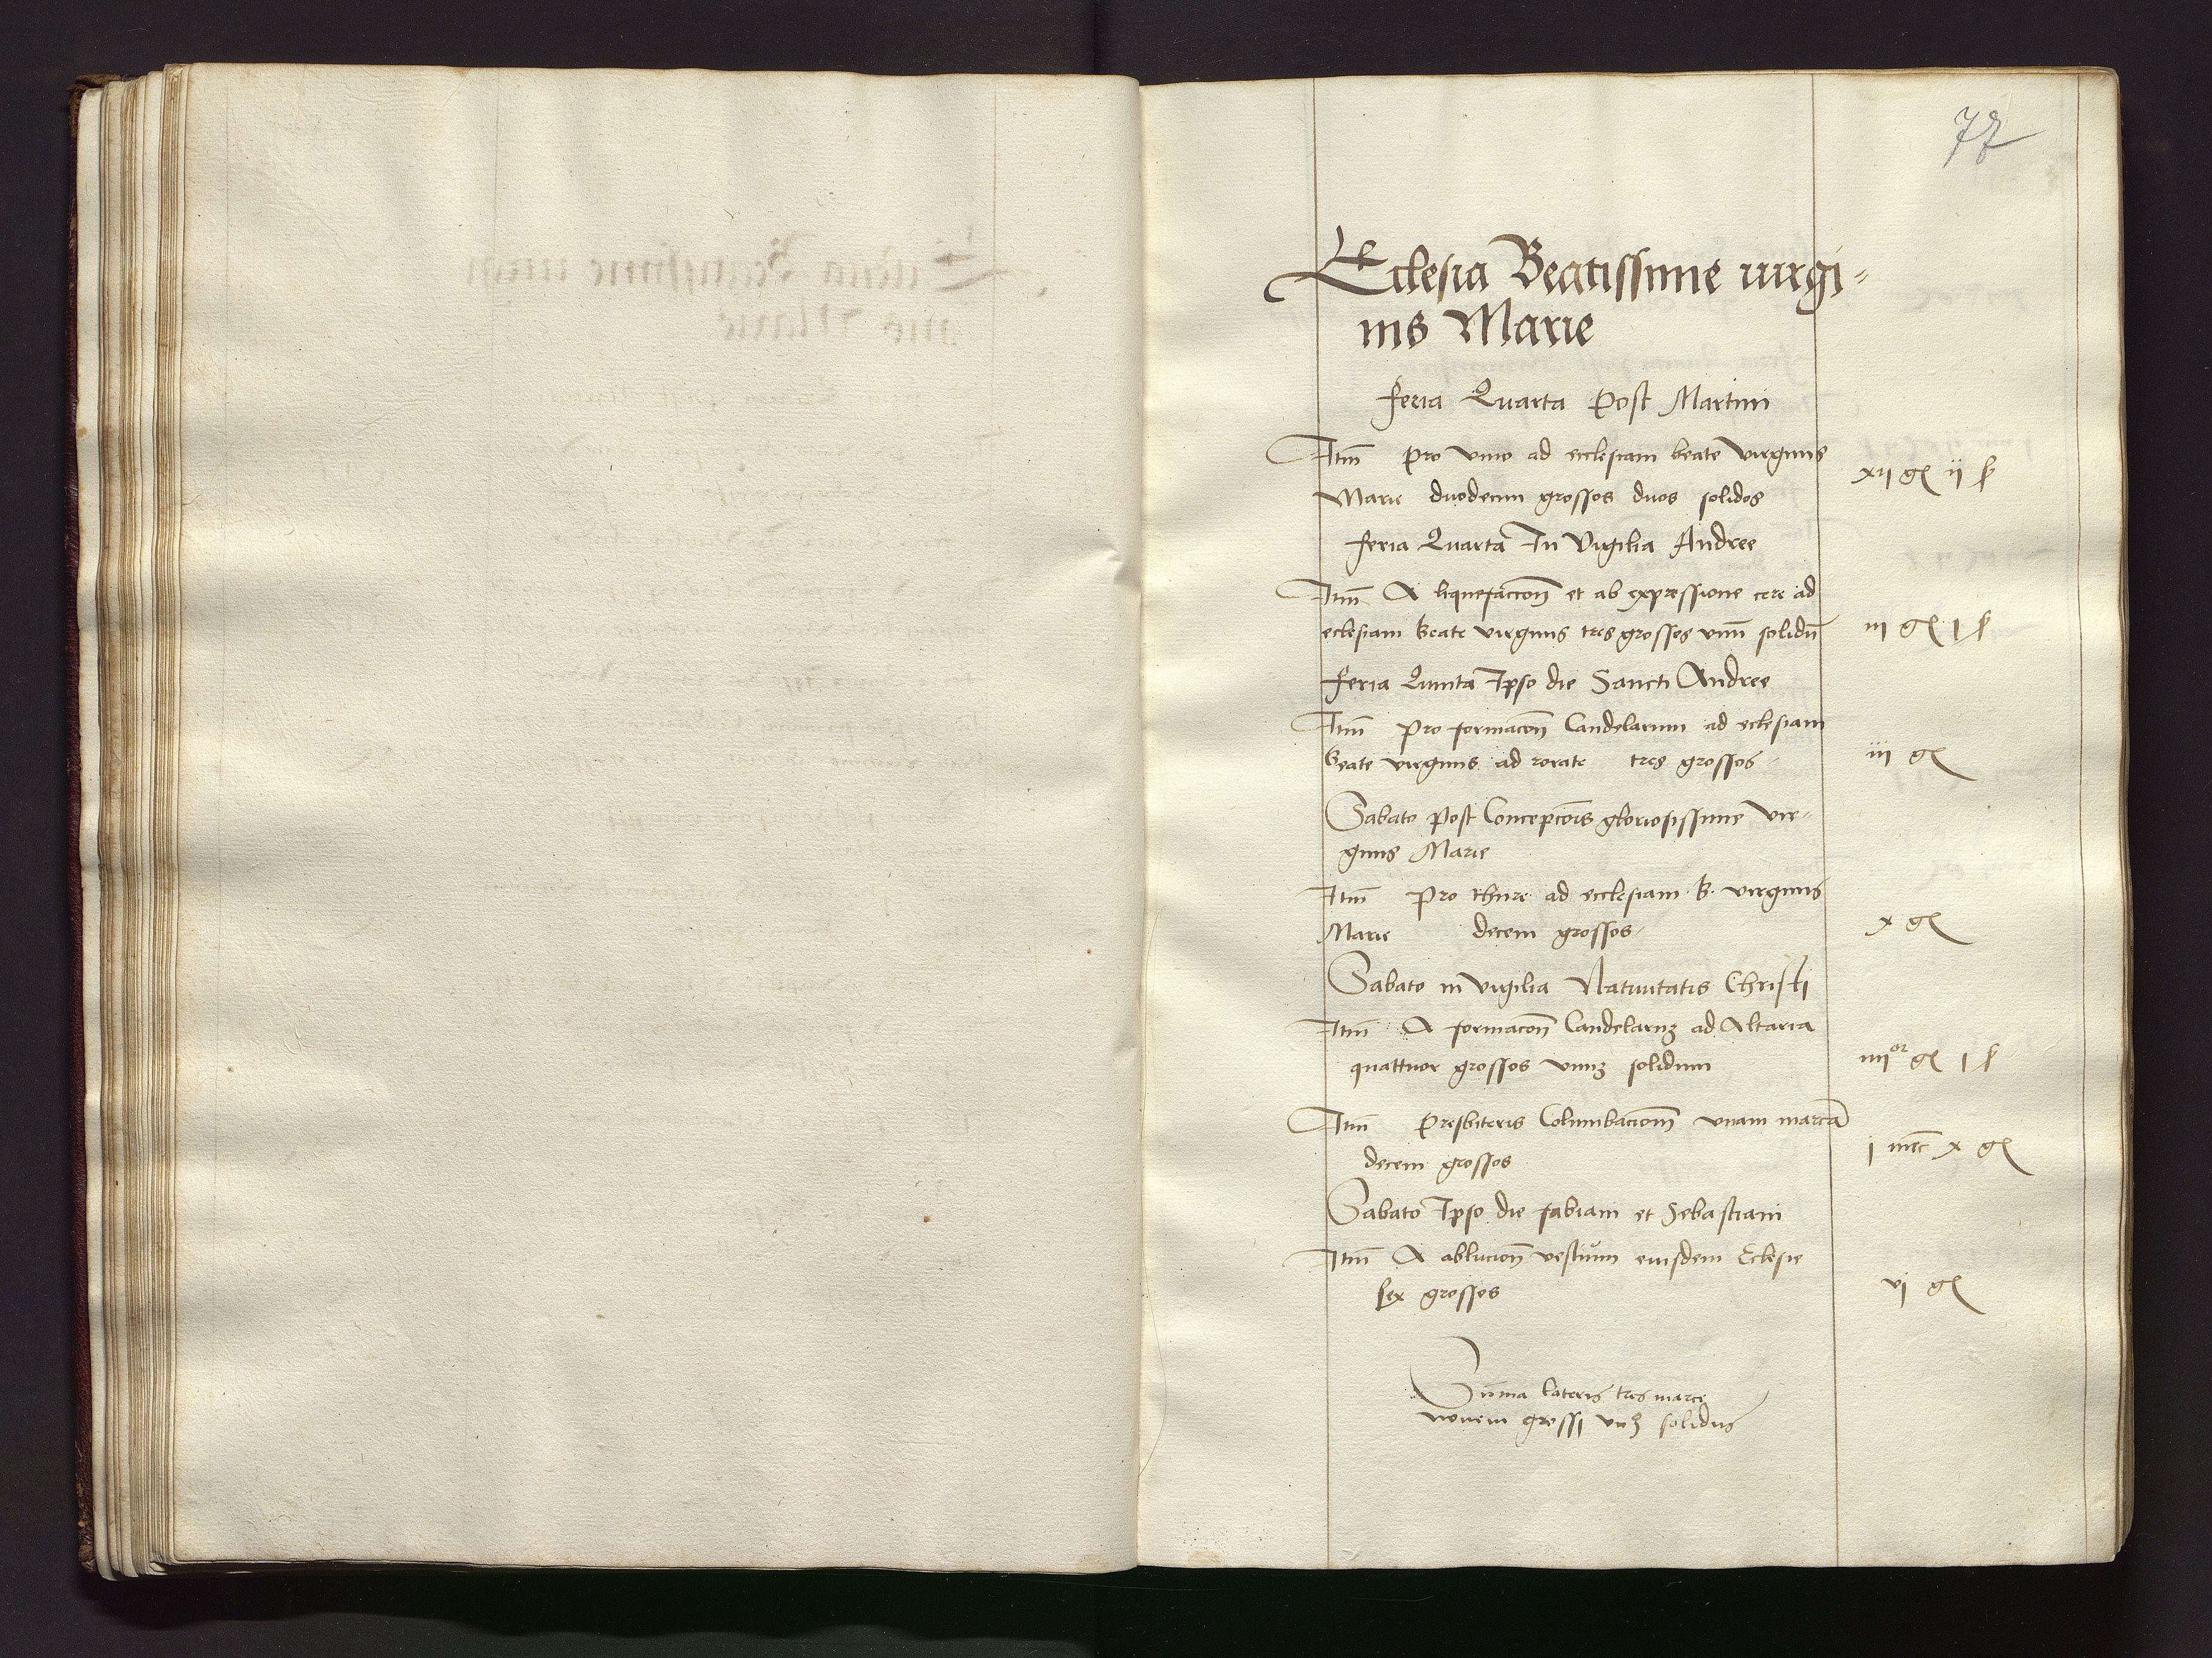 77
Eclesia Beatissime virgi-
nis Marie
feria Quarta Post Martini
Itm̄ Pro vino ad ecclesiam beate virginis
Marie duodecim grossos duos solidos
xij gʳ ij ß
feria Quarta In Vigilia Andree
Itm̄ A liquefaccion̄ et ab expressione cere ad
eclesiam beate virginis tres grossos vnū solidū
iij gʳ j ß
feria Quinta Ipso die Sancti Andree
Itm̄ Pro formacon̄ Candelarum ad eclesiam
beate virginis ad rorate tres grossos
iij gʳ
Sabato Post Concepcōis gloriosissime vir-
ginis Marie
Itm̄ Pro thure ad ecclesiam b. virginis
Marie decem grossos
x gʳ
Sabato in vigilia Natiuitatis Christi
Itm̄ A formacon̄ Candelarꝫ ad Altaria
quattuor grossos vnuꝫ solidum
iiijᵒʳ gʳ j ß
Itm̄ Presbiteris Columbacionū vnam marcā
decem grossos
j mrc̄ x gʳ
Sabato Ipso die fabiani et Sebastiani
Itm̄ A ablucion̄ vestium eiusdem Eclesie
sex grossos
vj gʳ
Sūma lateris tres marce
nouem grossi vnꝫ solidus